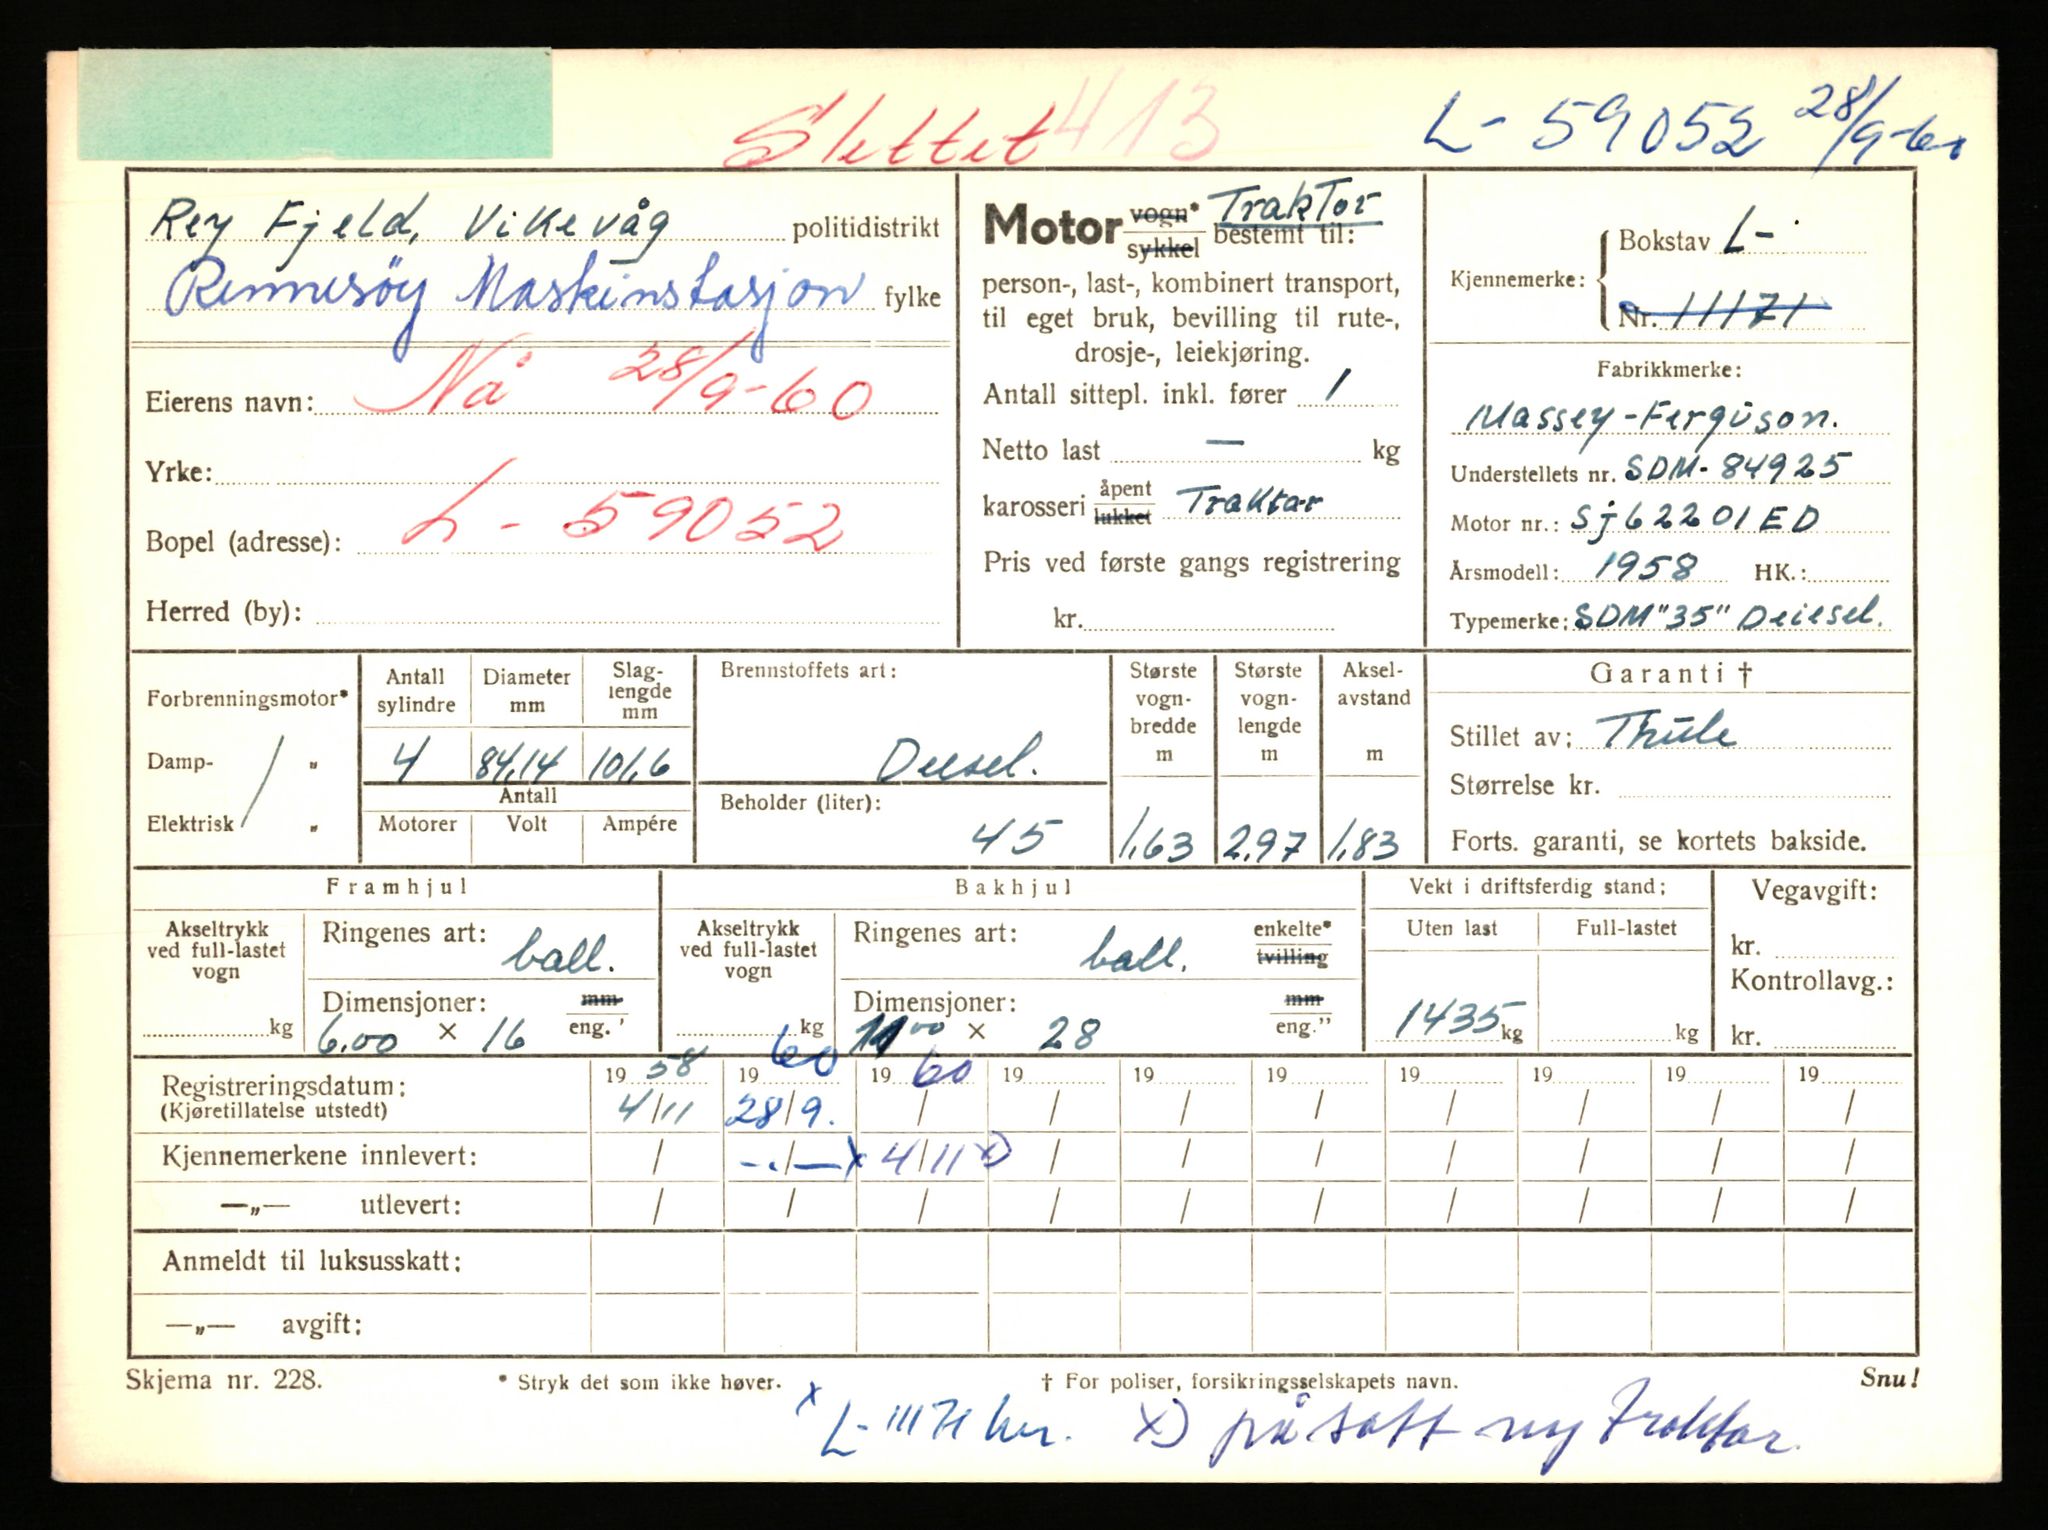 Slettet 413
L- 59052 28/9-60
Rey Fjeld, Vikevåg politidistrikt
Rennesöy Maskinstasjon fylke
Eierens navn: Nå 28/9-60
Yrke:
Bopel (adresse): L - 59052
Herred (by):
Motor vogn* sykkel Traktor bestemt til:
person-, last-, kombinert transport,
til eget bruk, bevilling til rute-,
drosje-, leiekjøring.
Antall sittepl. inkl. fører 1
Netto last — kg
karosseri åpent lukket Traktor
Pris ved første gangs registrering
kr.
Kjennemerke: Bokstav L-
Nr. 11171
Fabrikkmerke:
Massey-Ferguson.
Understellets nr. SDM-84925
Motor nr.: Sj62201ED
Årsmodell: 1958 HK.:
Typemerke: SDM "35" Deiesel.
Forbrenningsmotor*
Damp- „
Elektrisk „
Antall sylindre Diameter mm Slaglengde mm
4 84,14 101,6
Antall
Motorer Volt Ampére
Brennstoffets art:
Diesel.
Beholder (liter):
45
Største vognbredde m Største vognlengde m Akselavstand m
1,63 2,97 1,83
Garanti †
Stillet av: Thule
Størrelse kr.
Forts. garanti, se kortets bakside.
Framhjul
Akseltrykk ved full-lastet vogn kg
Ringenes art: ball.
Dimensjoner: mm eng. '
6.00 × 16
Bakhjul
Akseltrykk ved full-lastet vogn kg
Ringenes art: ball. enkelte* tvilling
Dimensjoner: mm eng."
11 00 × 28
Vekt i driftsferdig stand:
Uten last Full-lastet
1435 kg kg
Vegavgift:
kr.
Kontrollavg.:
kr.
Registreringsdatum: 19 58 19 60 19 60 19 19 19 19 19 19 19
(Kjøretillatelse utstedt) 4/11 28/9. / / / / / / / /
Kjennemerkene innlevert: / -.-/—x 4/11 x) / / / / / / /
—„— utlevert: / / / / / / / / / /
Anmeldt til luksusskatt:
—„— avgift:
Skjema nr. 228. * Stryk det som ikke høver. † For poliser, forsikringsselskapets navn. Snu!
x L-11171 her. x) påsatt ny traktor.